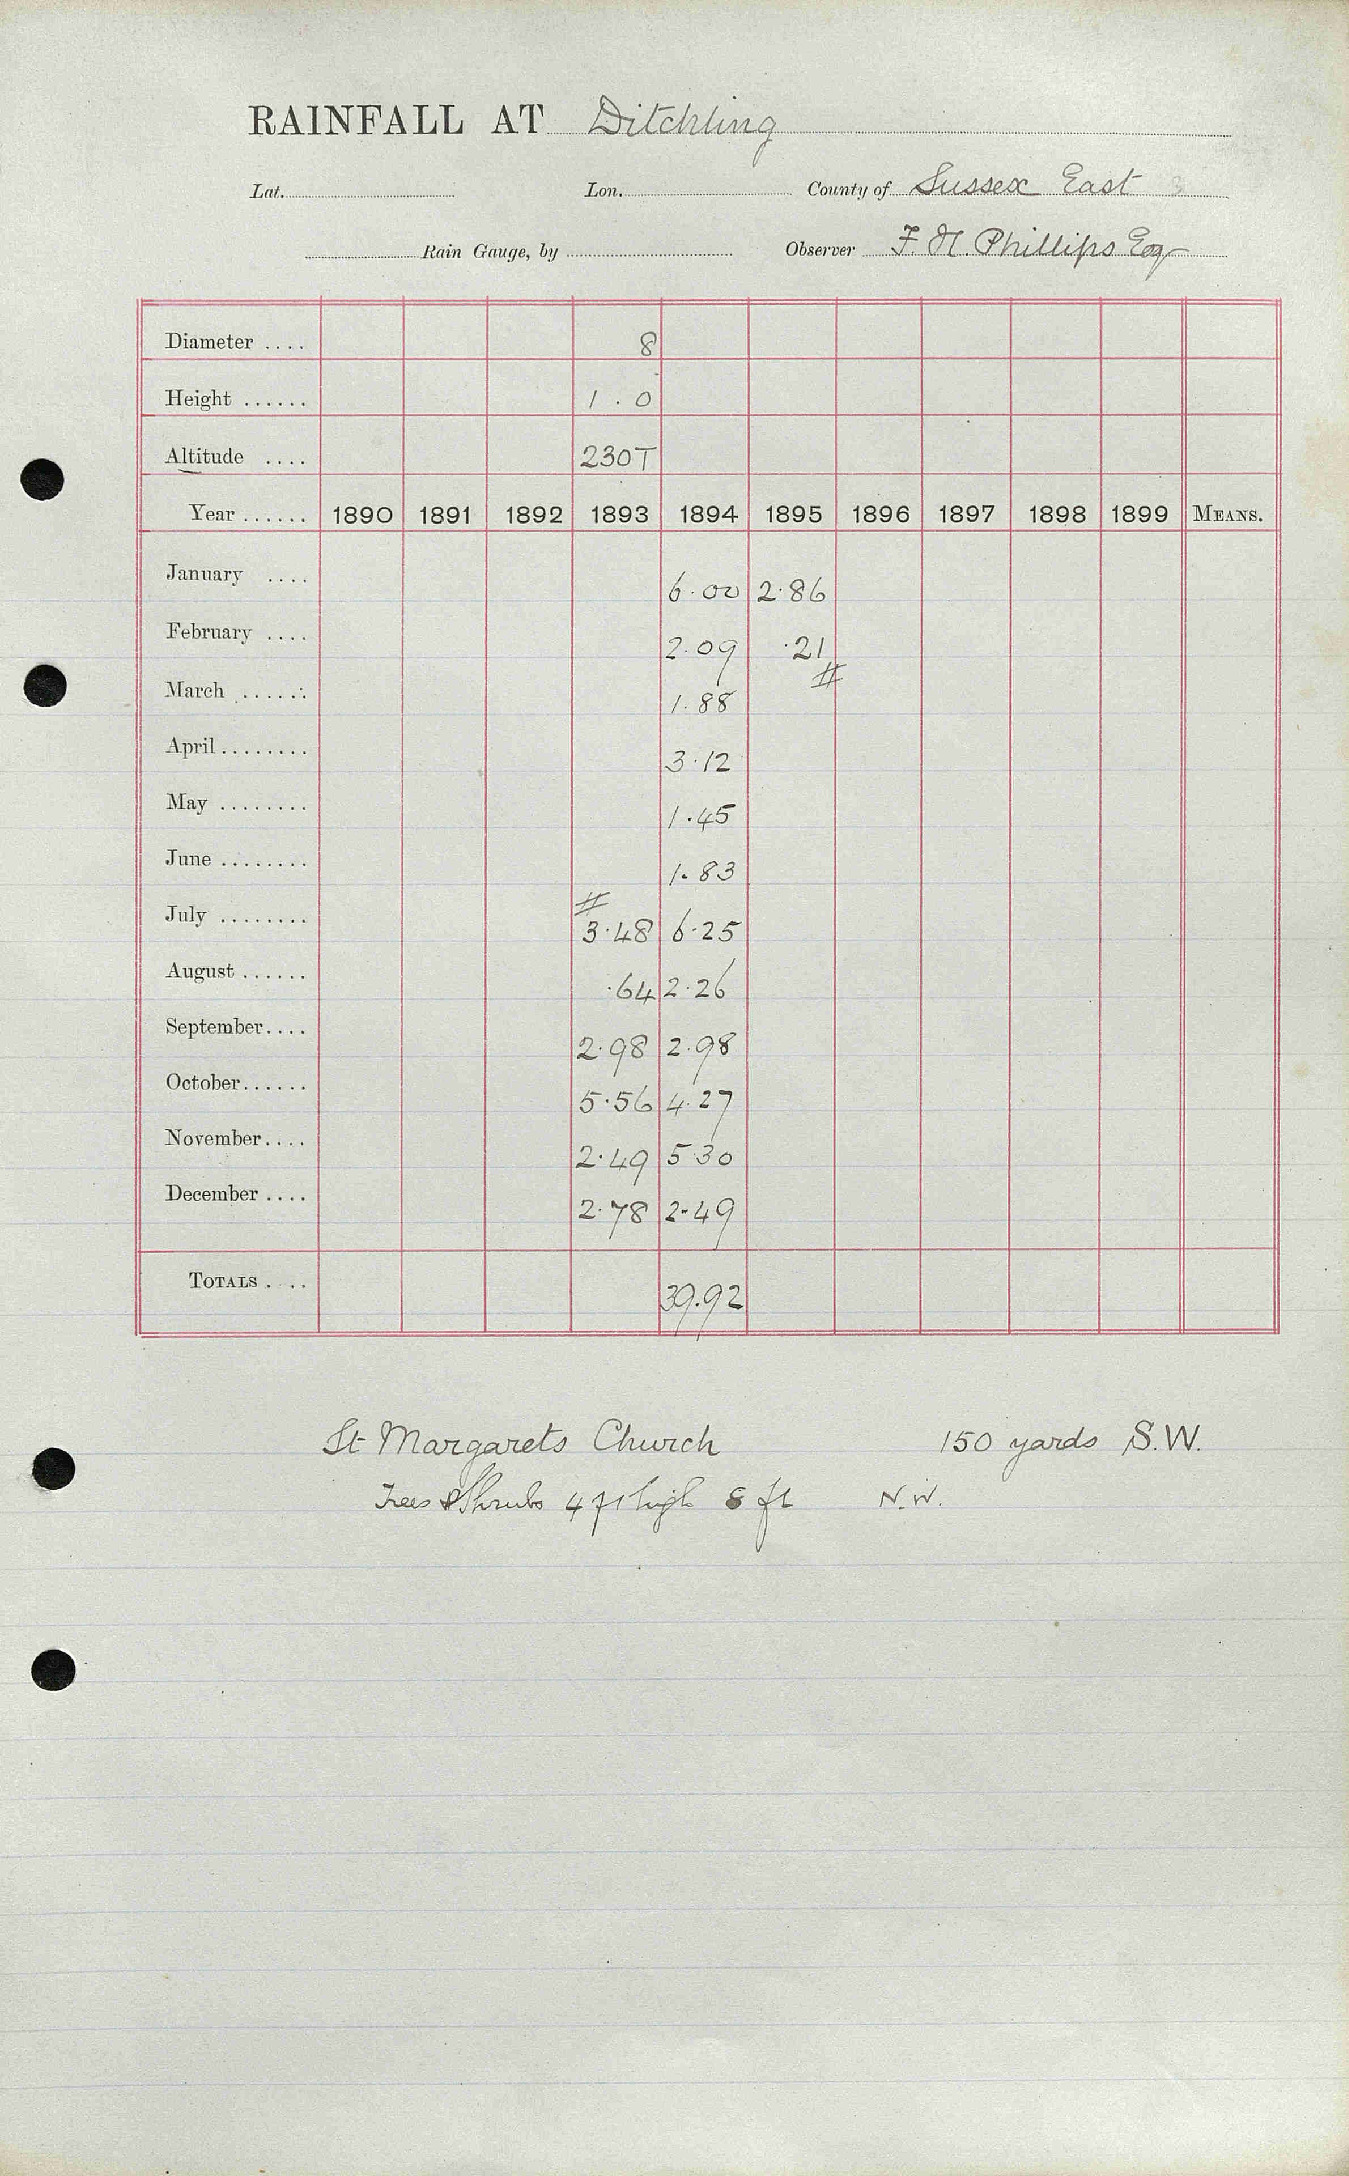 RAINFALL AT Ditchling
Lat. Lon. County of Sussex East 3
Rain Gauge, by Observer F. H. Phillips Esq
Diameter .... 8
Height ...... 1 . 0
Altitude .... 230T
Year ...... 1890 1891 1892 1893 1894 1895 1896 1897 1898 1899 MEANS.
January .... 6.00 2.86
February .... 2.09 .21
#
March ...... 1.88
April ........ 3.12
May ........ 1.45
June ........ 1.83
#
July ........ 3.48 6.25
August ...... .64 2.26
September.... 2.98 2.98
October...... 5.56 4.27
November.... 2.49 5.30
December .... 2.78 2.49
TOTALS .... 39.92
St Margarets Church 150 yards S.W.
Trees & Shrubs 4 ft high 8 ft N.W.